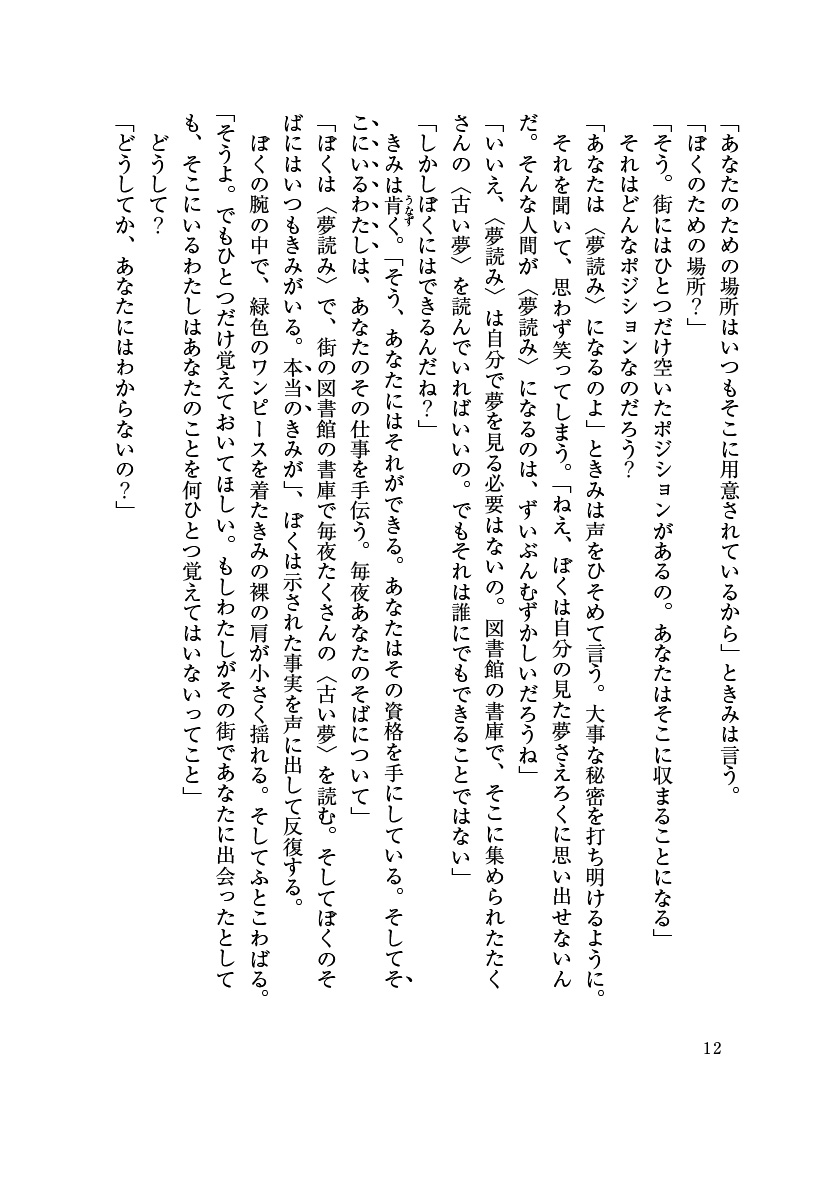 「あなたのための場所はいつもそこに用意されているから」ときみは言う。
「ぼくのための場所？」
「そう。街にはひとつだけ空いたポジションがあるの。あなたはそこに収まることになる」
それはどんなポジションなのだろう？
「あなたは〈夢読み〉になるのよ」ときみは声をひそめて言う。大事な秘密を打ち明けるように。
それを聞いて、思わず笑ってしまう。「ねえ、ぼくは自分の見た夢さえろくに思い出せないん
だ。そんな人間が〈夢読み〉になるのは、ずいぶんむずかしいだろうね」
「いいえ、〈夢読み〉は自分で夢を見る必要はないの。図書館の書庫で、そこに集められたたく
さんの〈古い夢〉を読んでいればいいの。でもそれは誰にでもできることではない」
「しかしぼくにはできるんだね？」
きみは肯く。「そう、あなたにはそれができる。あなたはその資格を手にしている。そしてそ
うなず
こにいるわたしは、あなたのその仕事を手伝う。毎夜あなたのそばについて」
「ぼくは〈夢読み〉で、街の図書館の書庫で毎夜たくさんの〈古い夢〉を読む。そしてぼくのそ
ばにはいつもきみがいる。本当のきみが」、ぼくは示された事実を声に出して反復する。
ぼくの腕の中で、緑色のワンピースを着たきみの裸の肩が小さく揺れる。そしてふとこわばる。
「そうよ。でもひとつだけ覚えておいてほしい。もしわたしがその街であなたに出会ったとして
も、そこにいるわたしはあなたのことを何ひとつ覚えてはいないってこと」
どうして？
「どうしてか、あなたにはわからないの？」
12